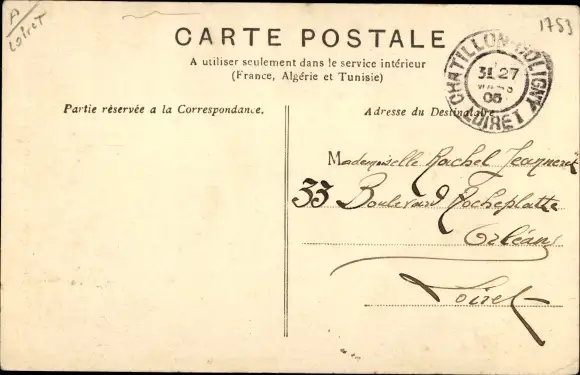 A
Loiret
1753
CARTE POSTALE
A utiliser seulement dans le service intérieur
(France, Algérie et Tunisie)
CHATILLON-COLIGNY
31 27
05
LOIRET
Partie réservée a la Correspondance.
Adresse du Destinataire
Mademoiselle Rachel Jeanneret
33 Boulevard Rocheplatte
Orléans
Loiret